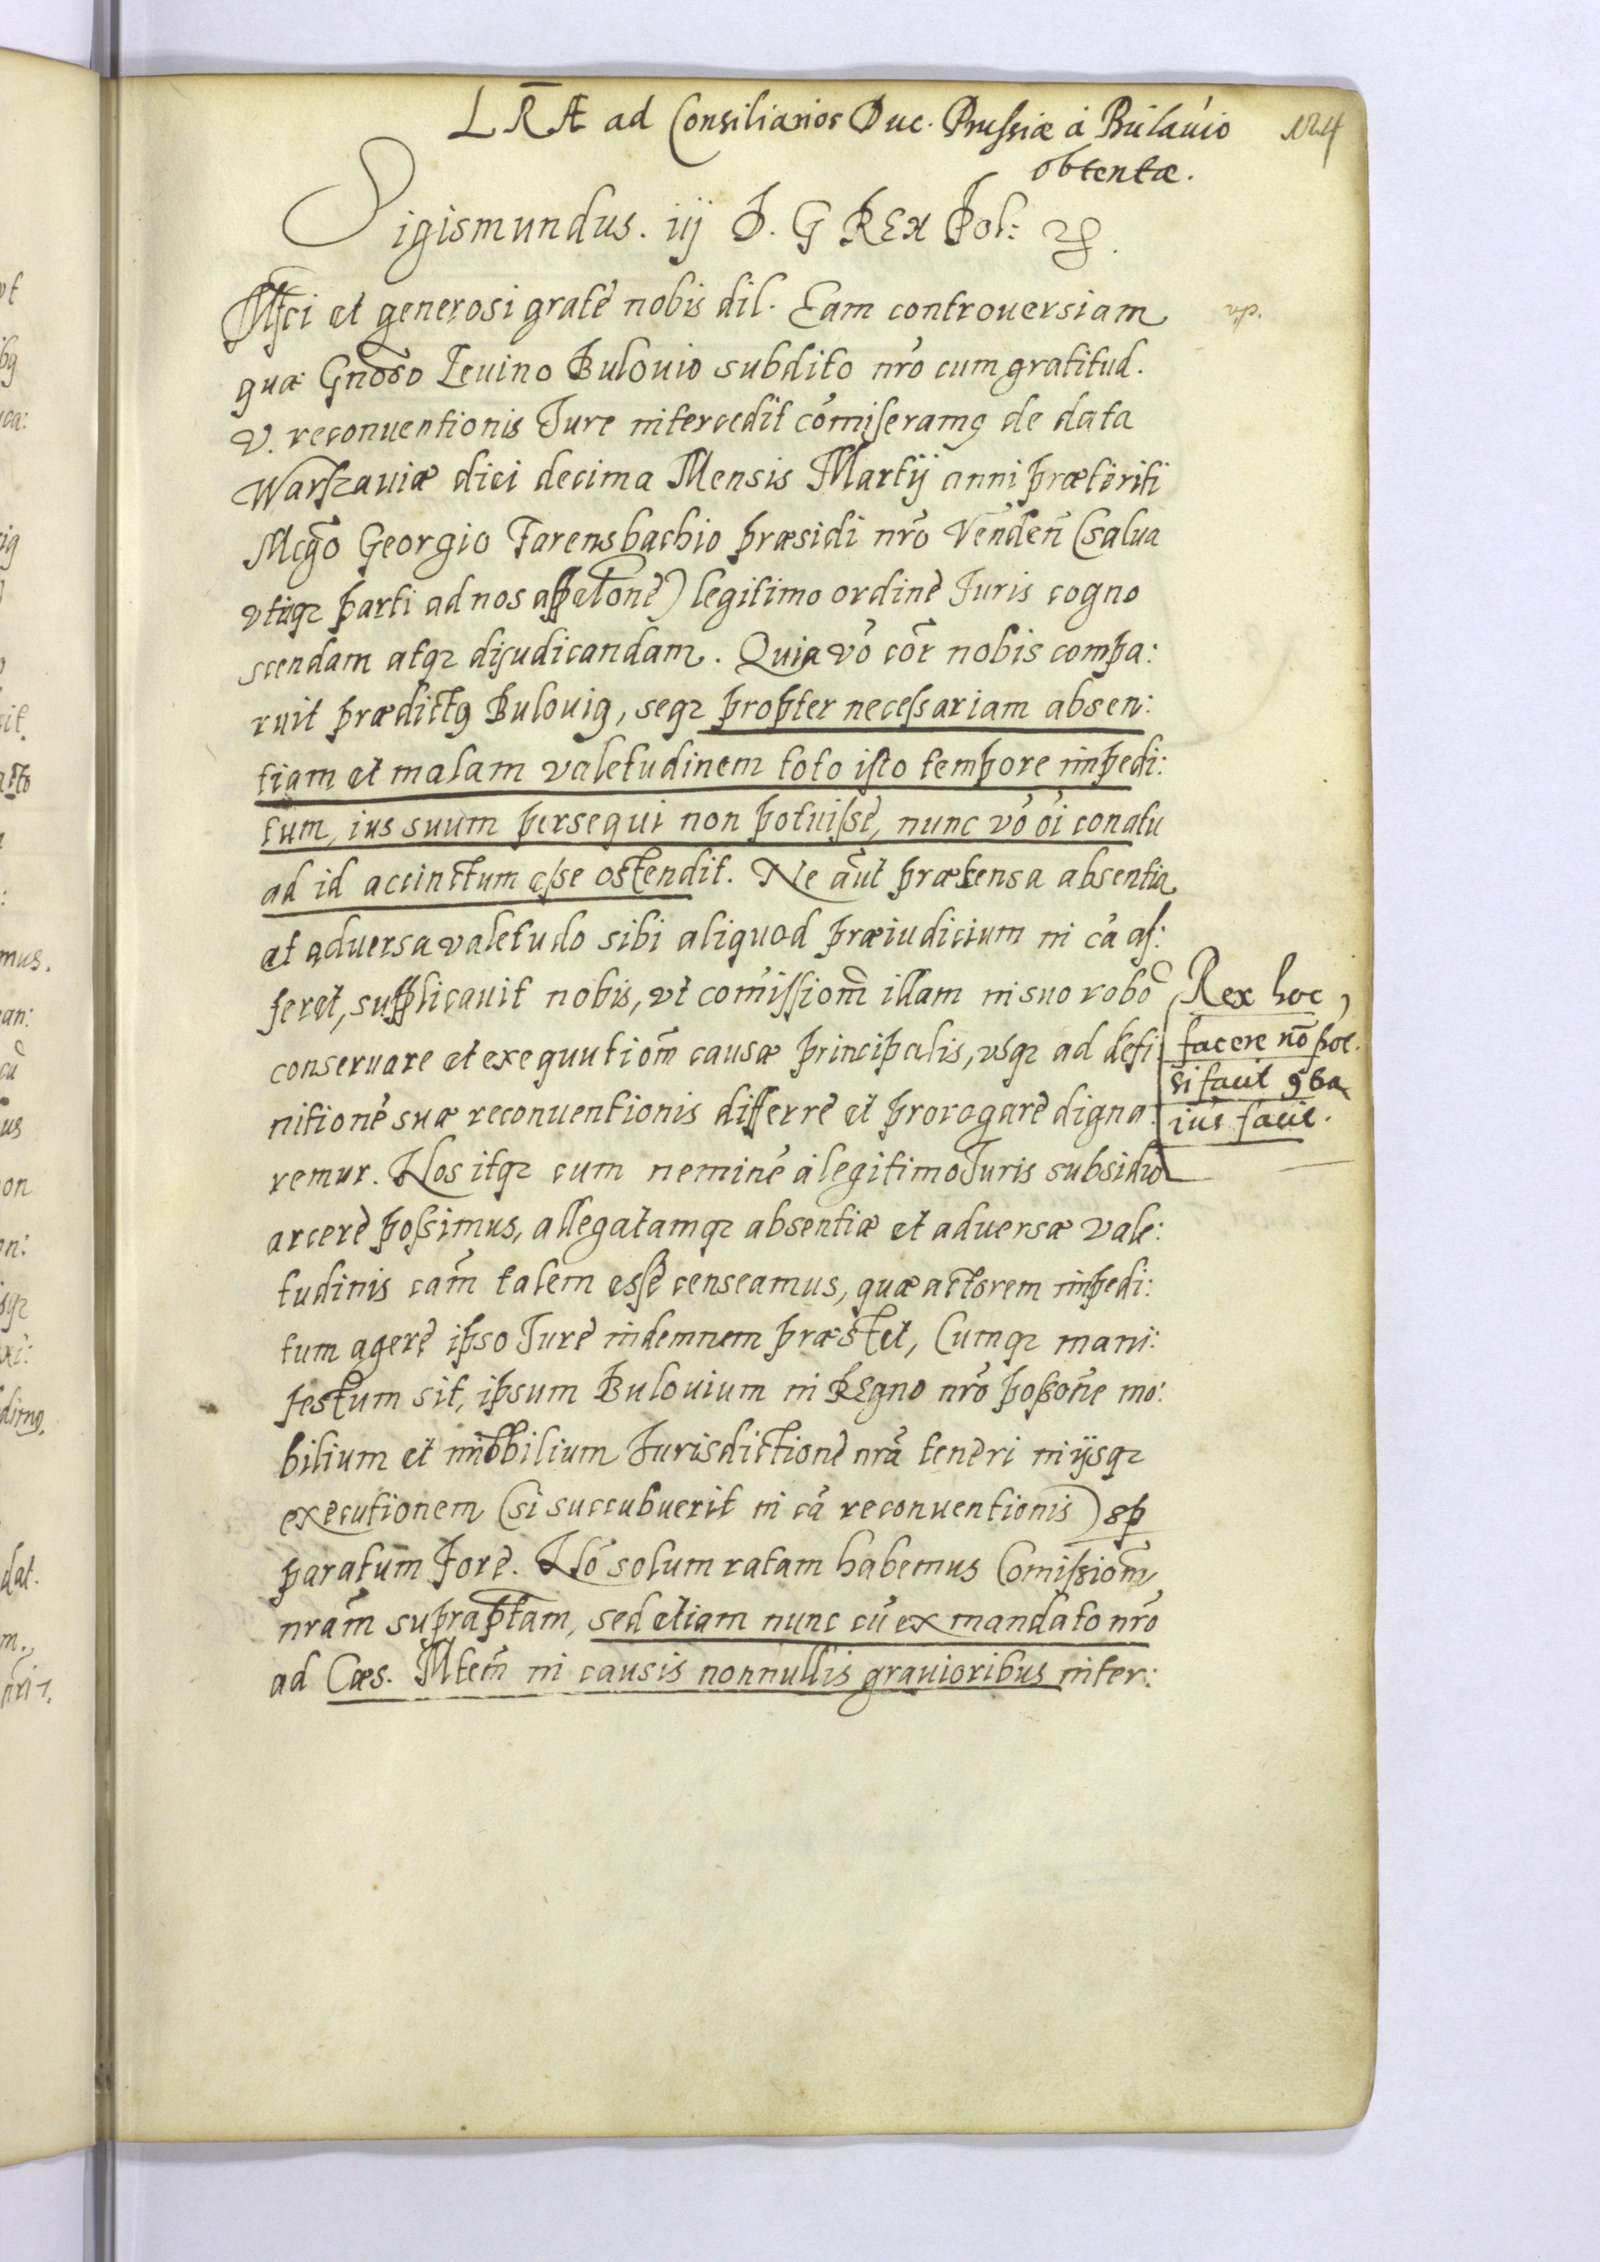 LRÆ ad Consiliarios Duc. Prussiæ à Bulauio
obtentæ.
124
Sigismundus. iij D. G REX Pol: ꝛc.
Mfci et generosi gratē nobis dil. Eam controuersiam
quæ Gnōso Leuino Bulouio subdito nr̄o cum gratitud.
V. reconuentionis Jure intercedit cōmiseramꝰ de data
Warszauiæ diei decima Mensis Martij anni præteriti
Mcgō Georgio Farensbachio præsidi nr̄o Vendeñ (salua
vtiqꝫ parti ad nos appelōne) legitimo ordine Juris cogno
scendam atqꝫ dijudicandam. Quia vō cōr nobis compa:
ruit prædictꝰ Bulouiꝰ, seqꝫ propter necessariam absen:
tiam et malam valetudinem toto isto tempore impedi:
tum, ius suum persequi non potuisse, nunc vō oī conatu
ad id accinctum esse ostendit. Ne aūt prætensa absentia
et aduersa valetudo sibi aliquod præiudicium in cā af:
feret, supplicauit nobis, vt comīssionē illam in suo robō
conseruare et exequutionē causæ principalis, vsqꝫ ad defi
nitionē suæ reconuentionis differre et prorogare digna:
remur. Nos itqꝫ cum neminē à legitimo Juris subsidio
arcere possimus, allegatamqꝫ absentiæ et aduersæ vale:
tudinis cām talem esse censeamus, quæ actorem impedi:
tum agere ipso Jure indemnem præstet, Cumqꝫ mani:
festum sit, ipsum Bulouium in REgno nr̄o possōne mo:
bilium et imōbilium Jurisdictionē nrā teneri in ijsqꝫ
executionem (si succubuerit in cā reconuentionis) sp
paratum fore. Nō solum ratam habemus Comissionē
nrām supraptam, sed etiam nunc cū ex mandato nrō
ad Cæs. Mtem̄ in causis nonnullis grauioribus inter:
Rex hoc
facere nō pot.
si facit ꝯtra
ius facit.